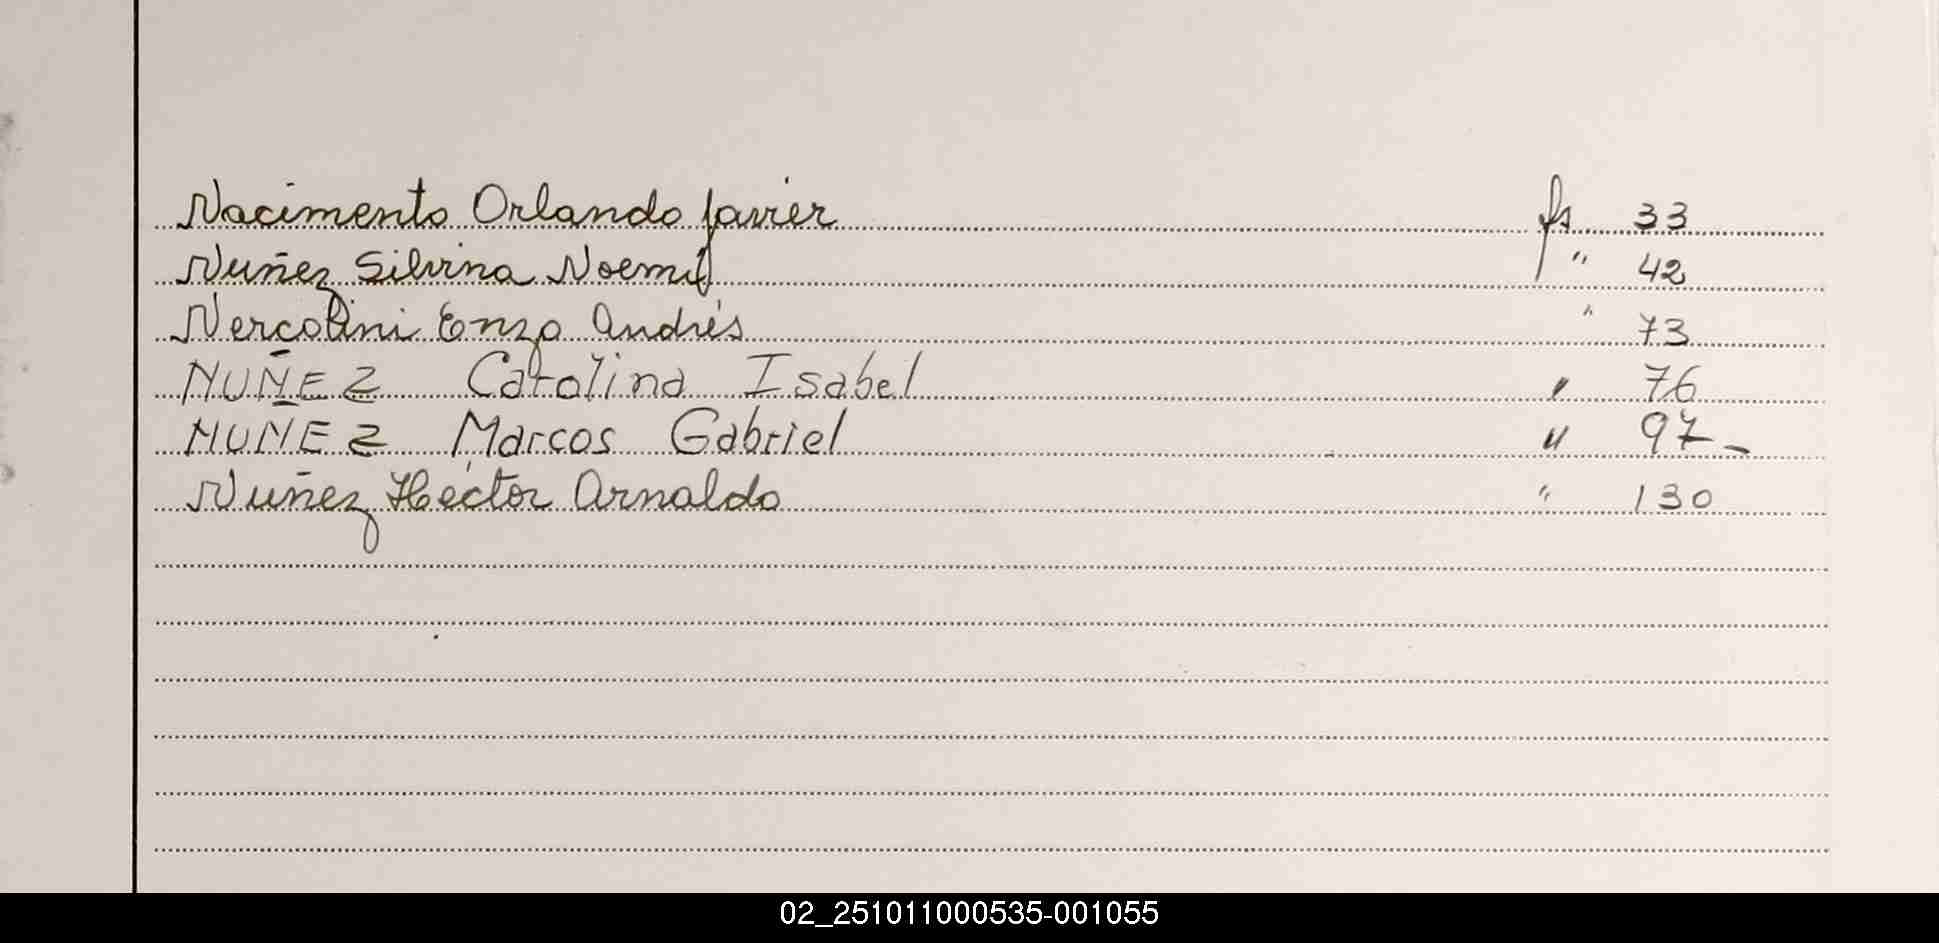 Nacimento Orlando Javier fs 33
Nuñez Silvina Noemí " 42
Nercolini Enzo Andrés " 73
NUÑEZ Carolina Isabel " 76
NUÑEZ Marcos Gabriel " 97-
Nuñez Héctor Arnaldo " 130
02_251011000535-001055